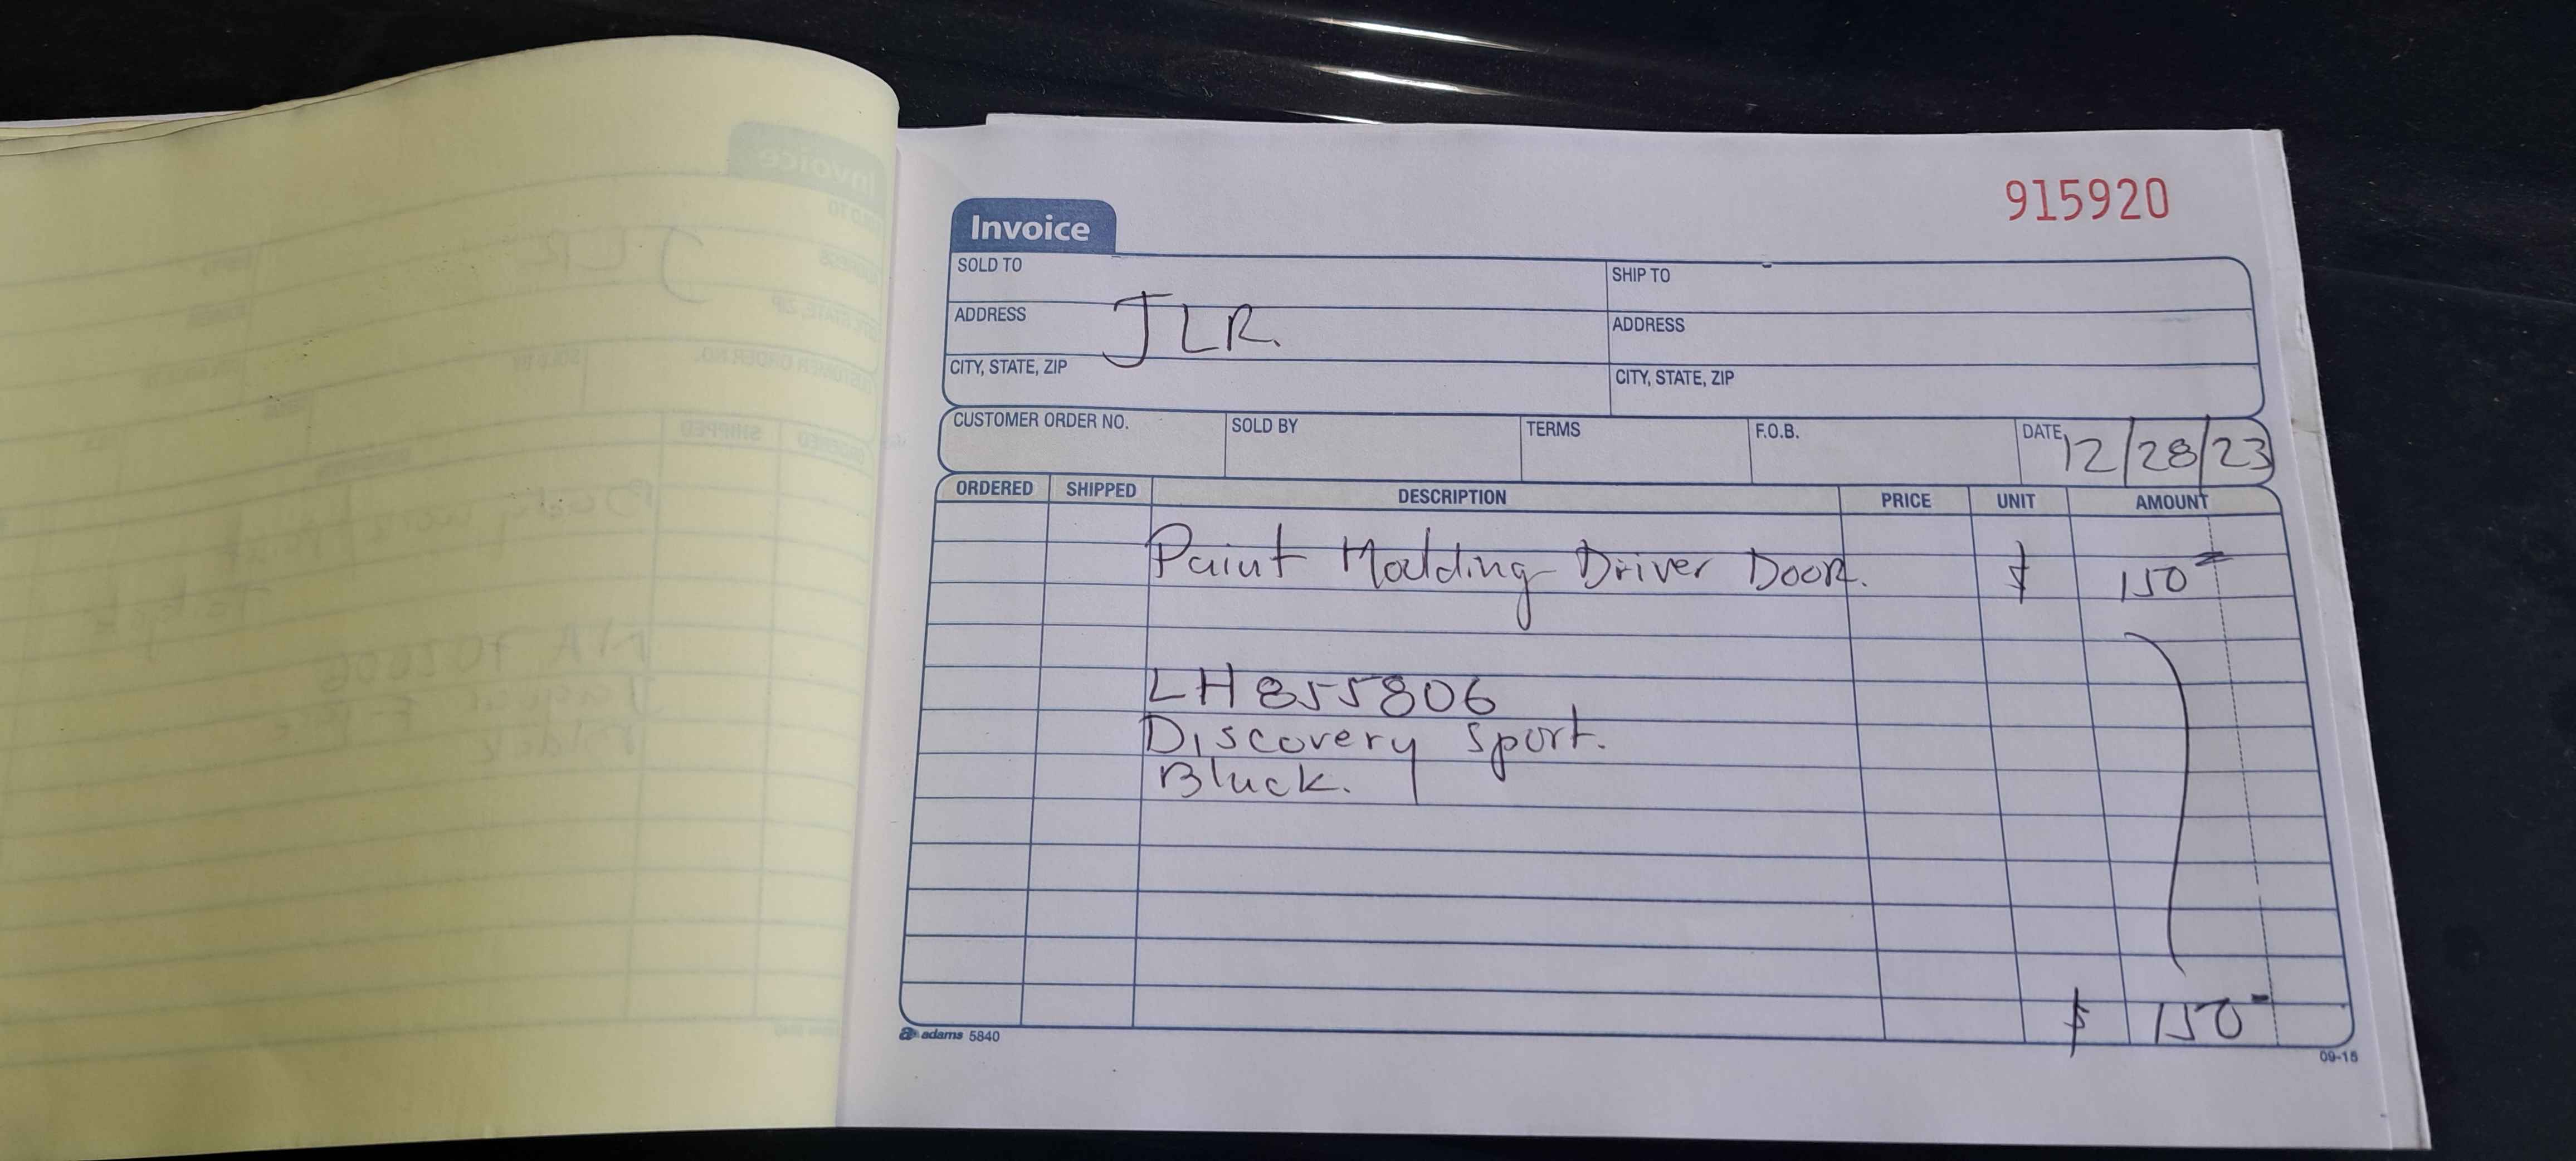 915920
Invoice
SOLD TO
SHIP TO
ADDRESS JLR.
ADDRESS
CITY, STATE, ZIP
CITY, STATE, ZIP
CUSTOMER ORDER NO. SOLD BY TERMS F.O.B. DATE 12/28/23
ORDERED SHIPPED DESCRIPTION PRICE UNIT AMOUNT
Paint Molding Driver Door. $ 150=
LH855806
Discovery Sport.
Black.
$ 150-
adams 5840
09-15